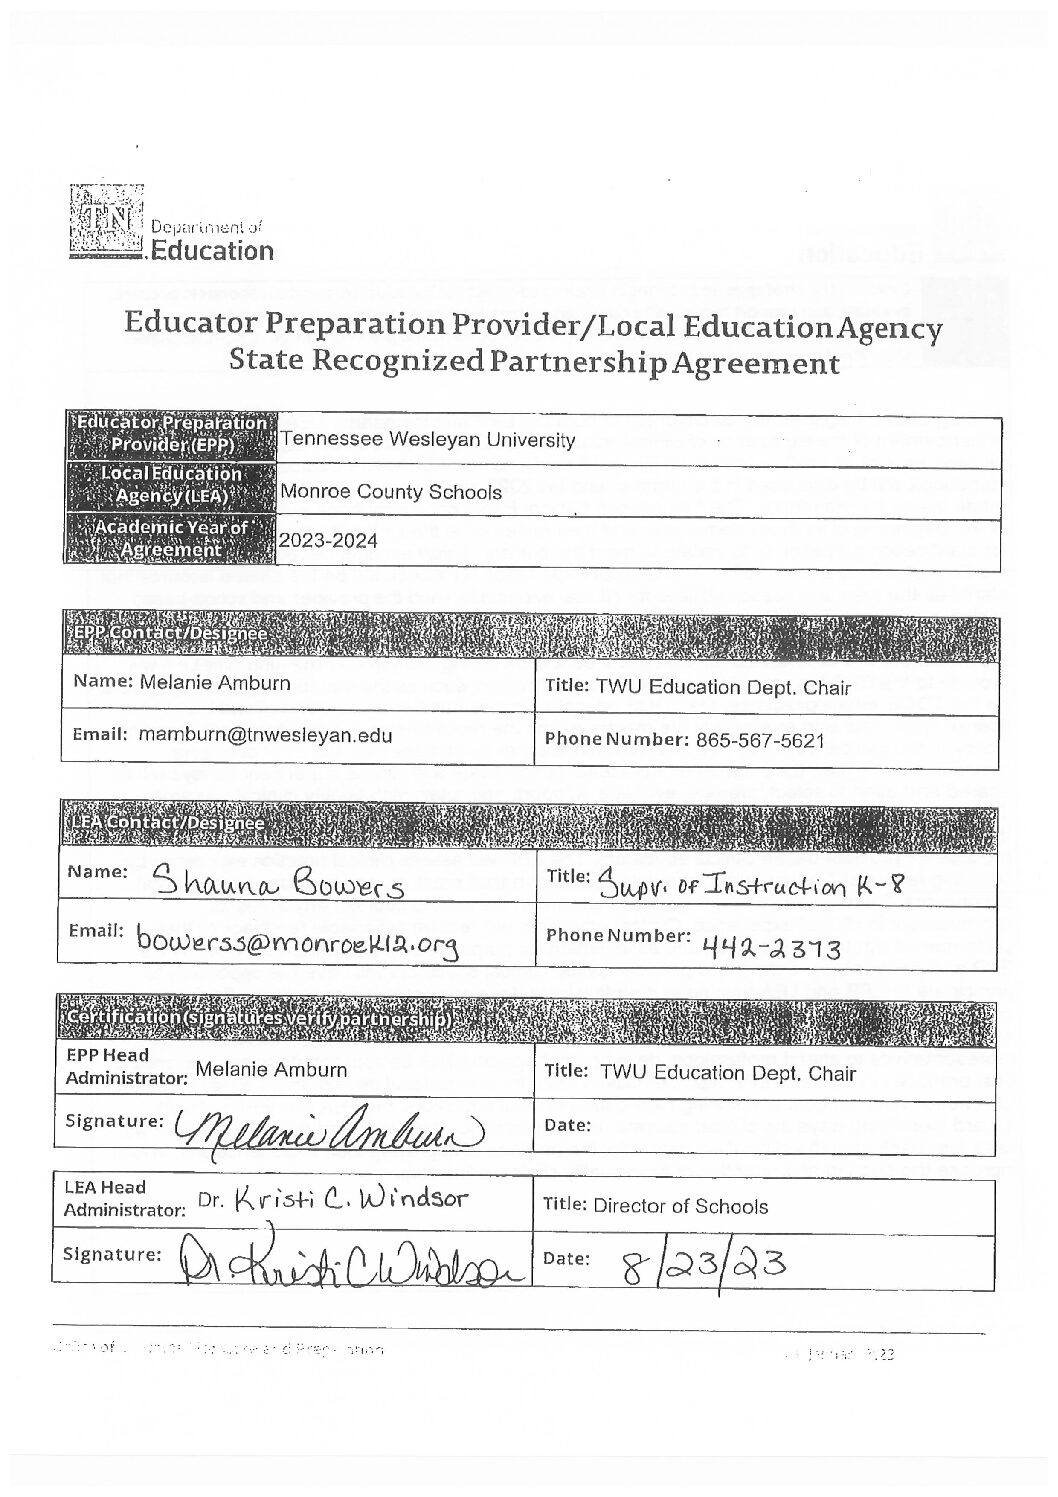 TN
Department of
Education
Educator Preparation Provider/Local Education Agency
State Recognized Partnership Agreement
Educator Preparation
Provider (EPP)
Tennessee Wesleyan University
Local Education
Agency (LEA)
Monroe County Schools
Academic Year of
Agreement
2023-2024
EPP Contact/Designee
Name: Melanie Amburn
Title: TWU Education Dept. Chair
Email: mamburn@tnwesleyan.edu
Phone Number: 865-567-5621
LEA Contact/Designee
Name: Shauna Bowers
Title: Supv. of Instruction K-8
Email: bowerss@monroek12.org
Phone Number: 442-2373
Certification (signatures verify partnership)
EPP Head
Administrator: Melanie Amburn
Title: TWU Education Dept. Chair
Signature: Melanie Amburn
Date:
LEA Head
Administrator: Dr. Kristi C. Windsor
Title: Director of Schools
Signature: Dr. Kristi C Windsor
Date: 8/23/23